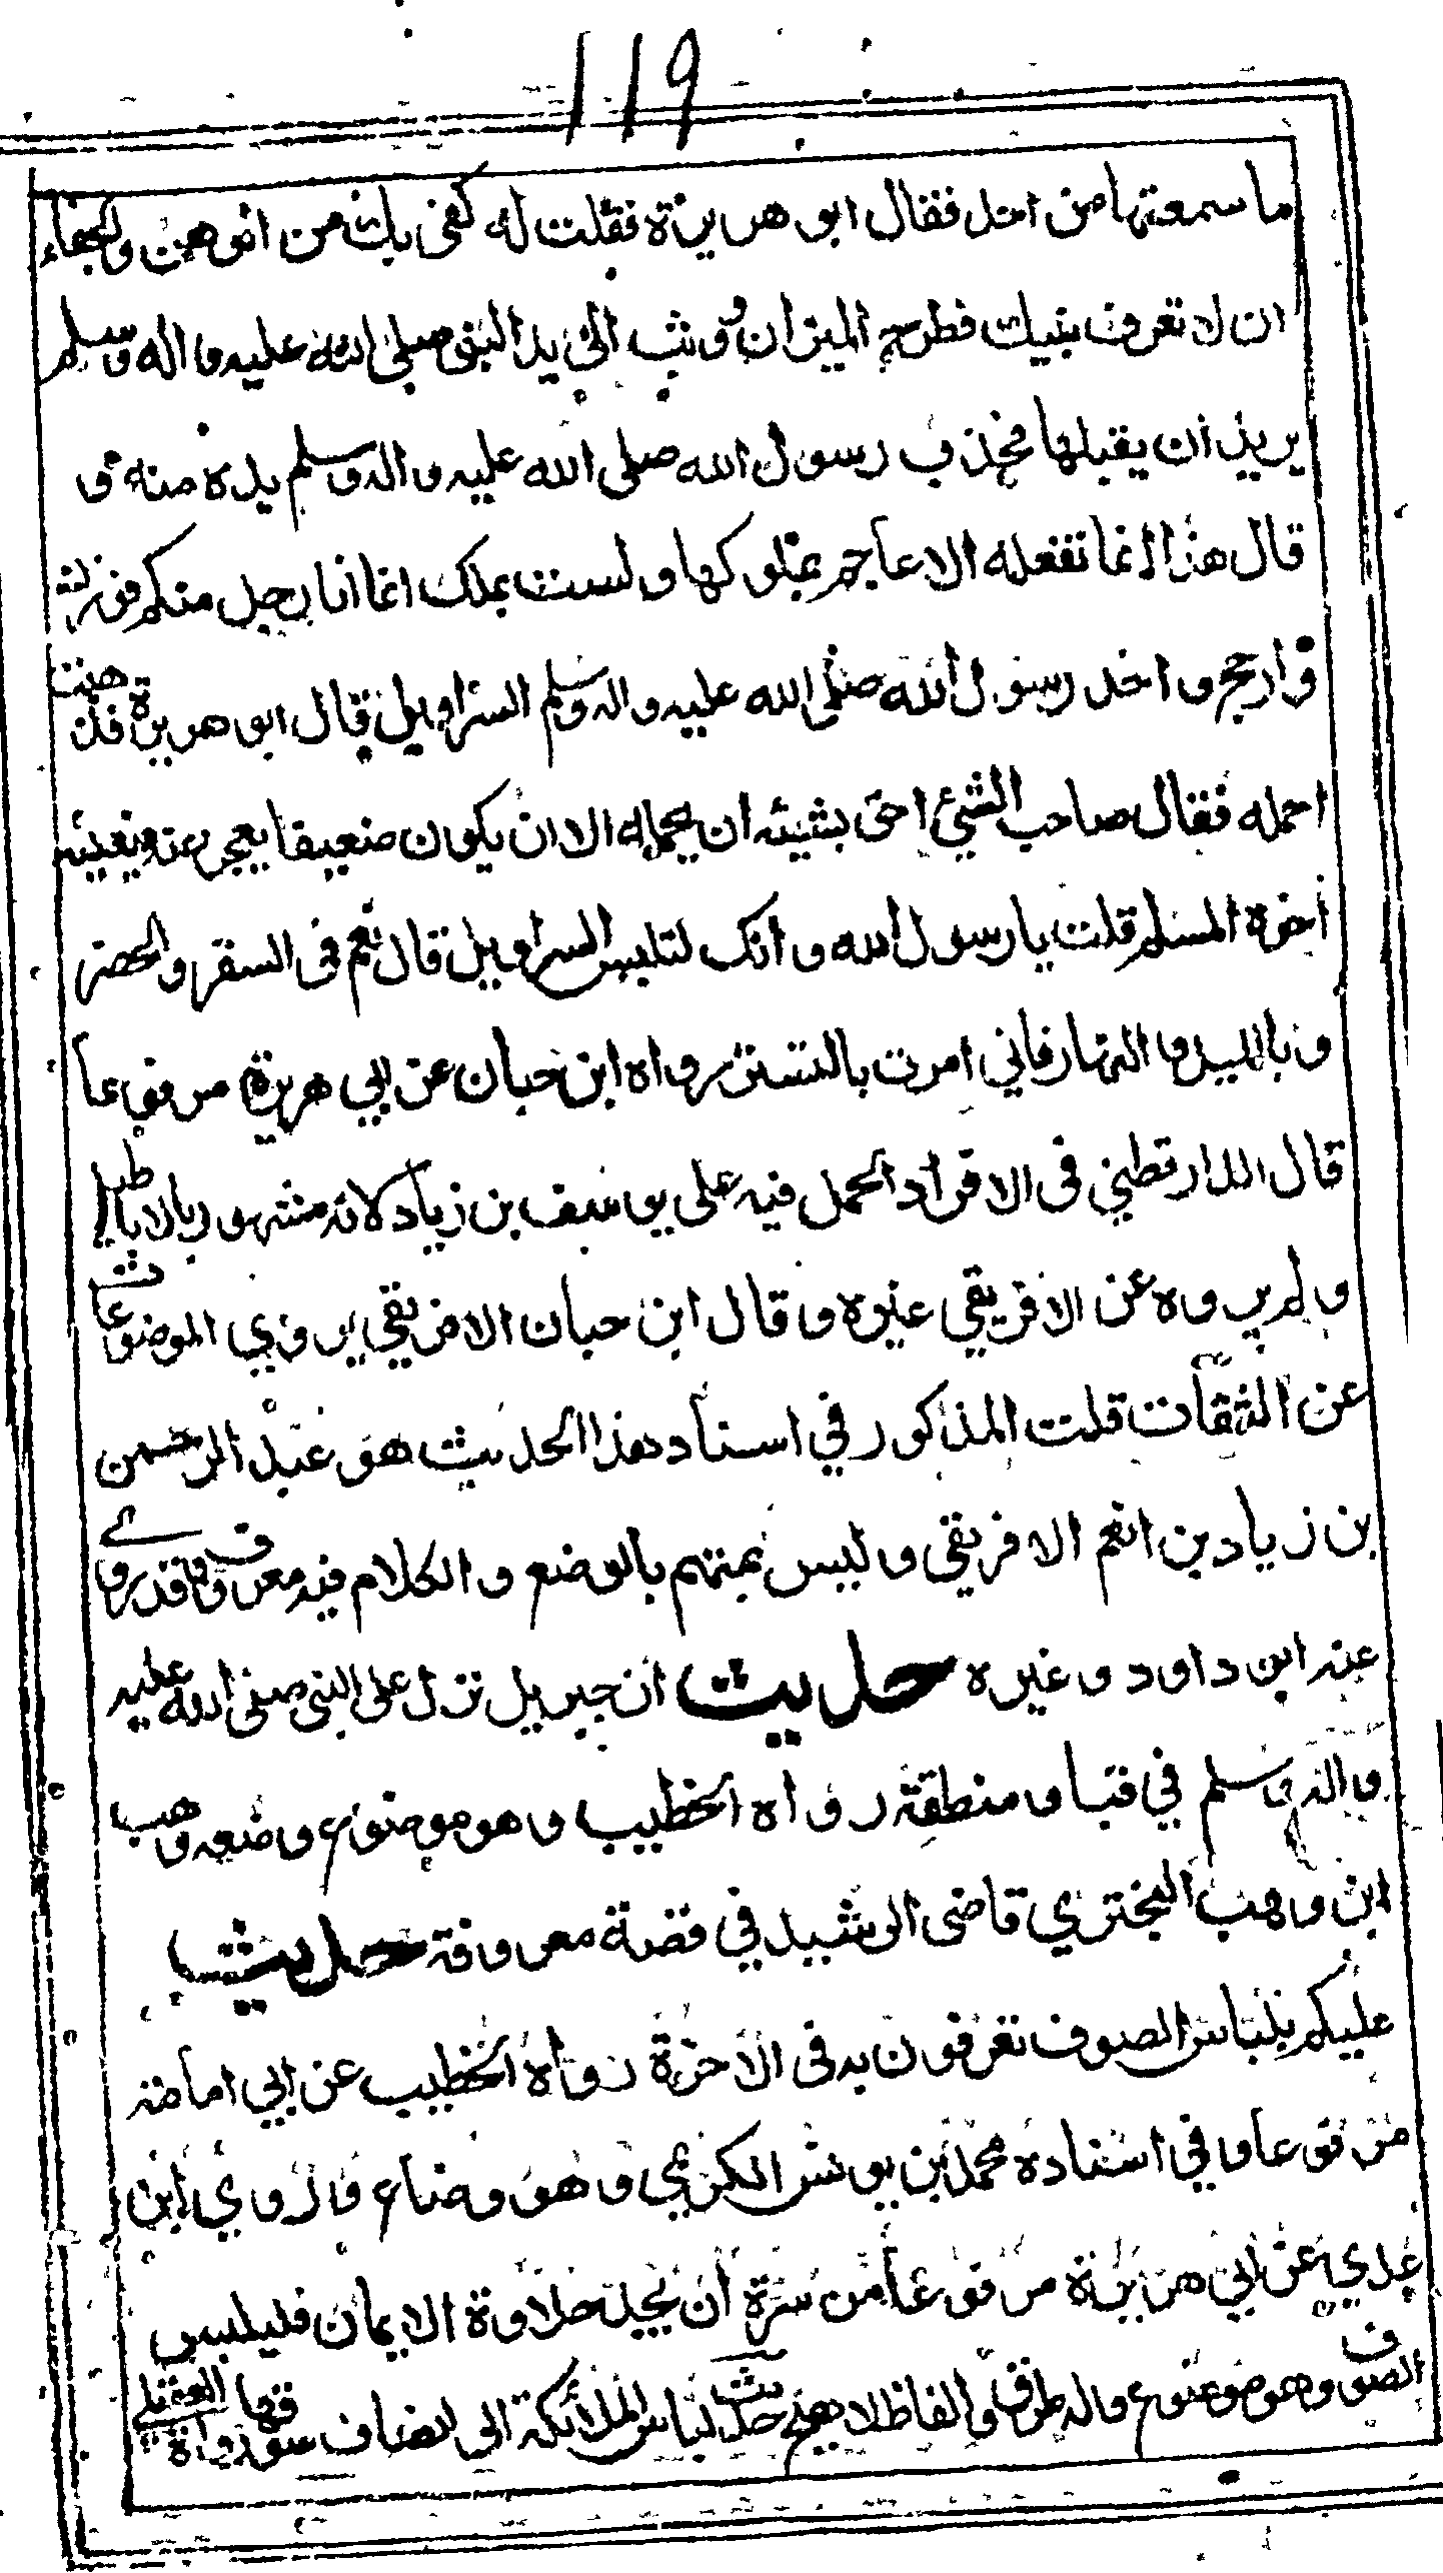 119
ما سمعتها من احد فقال ابو هريرة فقلت له كفى بك من الوهن والجفاء
ان لا تعرف بنيك فطرح الميزان ووثب الى يد النبي صلى الله عليه واله وسلم
يريد ان يقبلها فجذب رسول الله صلى الله عليه واله وسلم يده منه و
قال هذا انما تفعله الاعاجم بملوكها ولست بملك انما انا رجل منكم فوزن
وارجح واخذ رسول الله صلى الله عليه واله وسلم السراويل قال ابو هريرة فذهبت
احمله فقال صاحب الشئ احق بشيئه ان يحمله الا ان يكون ضعيفا يعجز عنه يعينه
اخوه المسلم قلت يا رسول الله وانك لتلبس السراويل قال نعم فى السفر والحضر
وبالليل والنهار فاني امرت بالتستر رواه ابن حبان عن ابي هريرة مرفوعا
قال الدارقطني فى الافراد الحمل فيه على يوسف بن زياد لانه مشهور بالاباطيل
ولم يروه عن الافريقي غيره وقال ابن حبان الافريقي يروي الموضوعات
عن الثقات قلت المذكور في اسناد هذا الحديث هو عبد الرحمن
بن زياد بن انعم الافريقي وليس بمتهم بالوضع والكلام فيه معروف وقد روى
عنه ابو داود وغيره حديث ان جبريل نزل على النبي صلى الله عليه
واله وسلم في قبا ومنطقة رواه الخطيب وهو موضوع وضعه وهب
ابن وهب البختري قاضى الرشيد في قصة معروفة حديث
عليكم بلباس الصوف تعرفون به فى الاخرة رواه الخطيب عن ابي امامة
مرفوعا وفي اسناده محمد بن يونس الكديمي وهو وضاع وروي ابن
عدي عن ابي هريرة مرفوعا من سره ان يجد حلاوة الايمان فليلبس
الصوف وهو موضوع وله طرق والفاظ لا يصح حديث لباس الملائكة الى انصاف سوقها رواه العقيلي